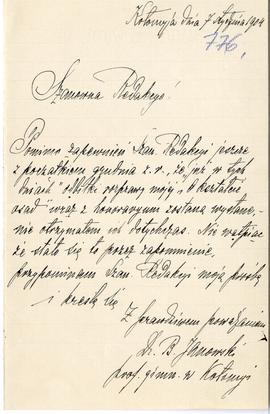 Kołomyja dnia 7 stycznia 1904
776.
Szanowna Redakcyo!
Pomimo zapewnień Szan. Redakcyi jeszcze
z początkiem grudnia z. r., że „już w tych
dniach" odbitki rozprawy mojej „O kształcie
osad" wraz z honoraryum zostaną wysłane,
nie otrzymałem ich dotychczas. Nie wątpiąc
że stało się to przez zapomnienie,
przypominam Szan. Redakcyi moją prośbę
i kreślę się
Z prawdziwem poważaniem
Dr. B. Janowski
prof. gimn. w Kołomyi